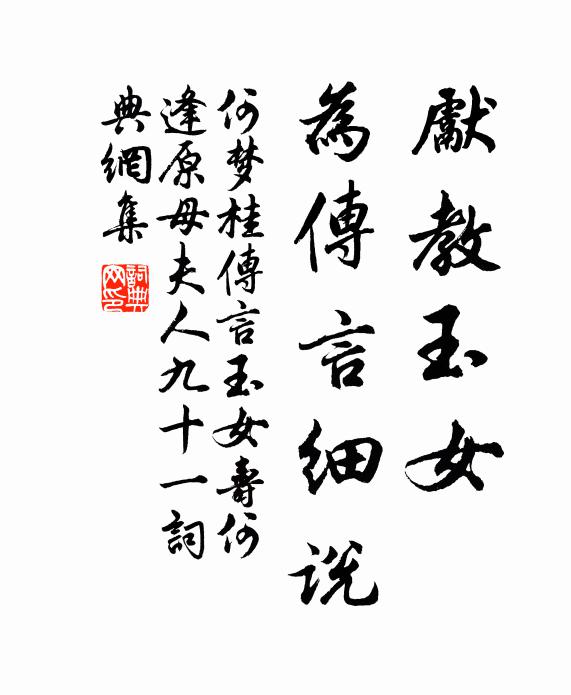 獻教玉女
為傳言細說
何梦桂傳言玉女壽何
逢原母夫人九十一詞
典網集
詞典網印